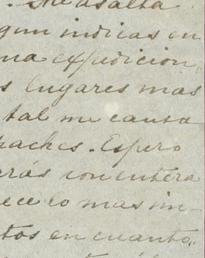 . Me asalta
gun indicas en
na expedicion,
s lugares mas
tal me causa
paches. Espero
rás con entera
ece lo mas in-
tos en cuanto,